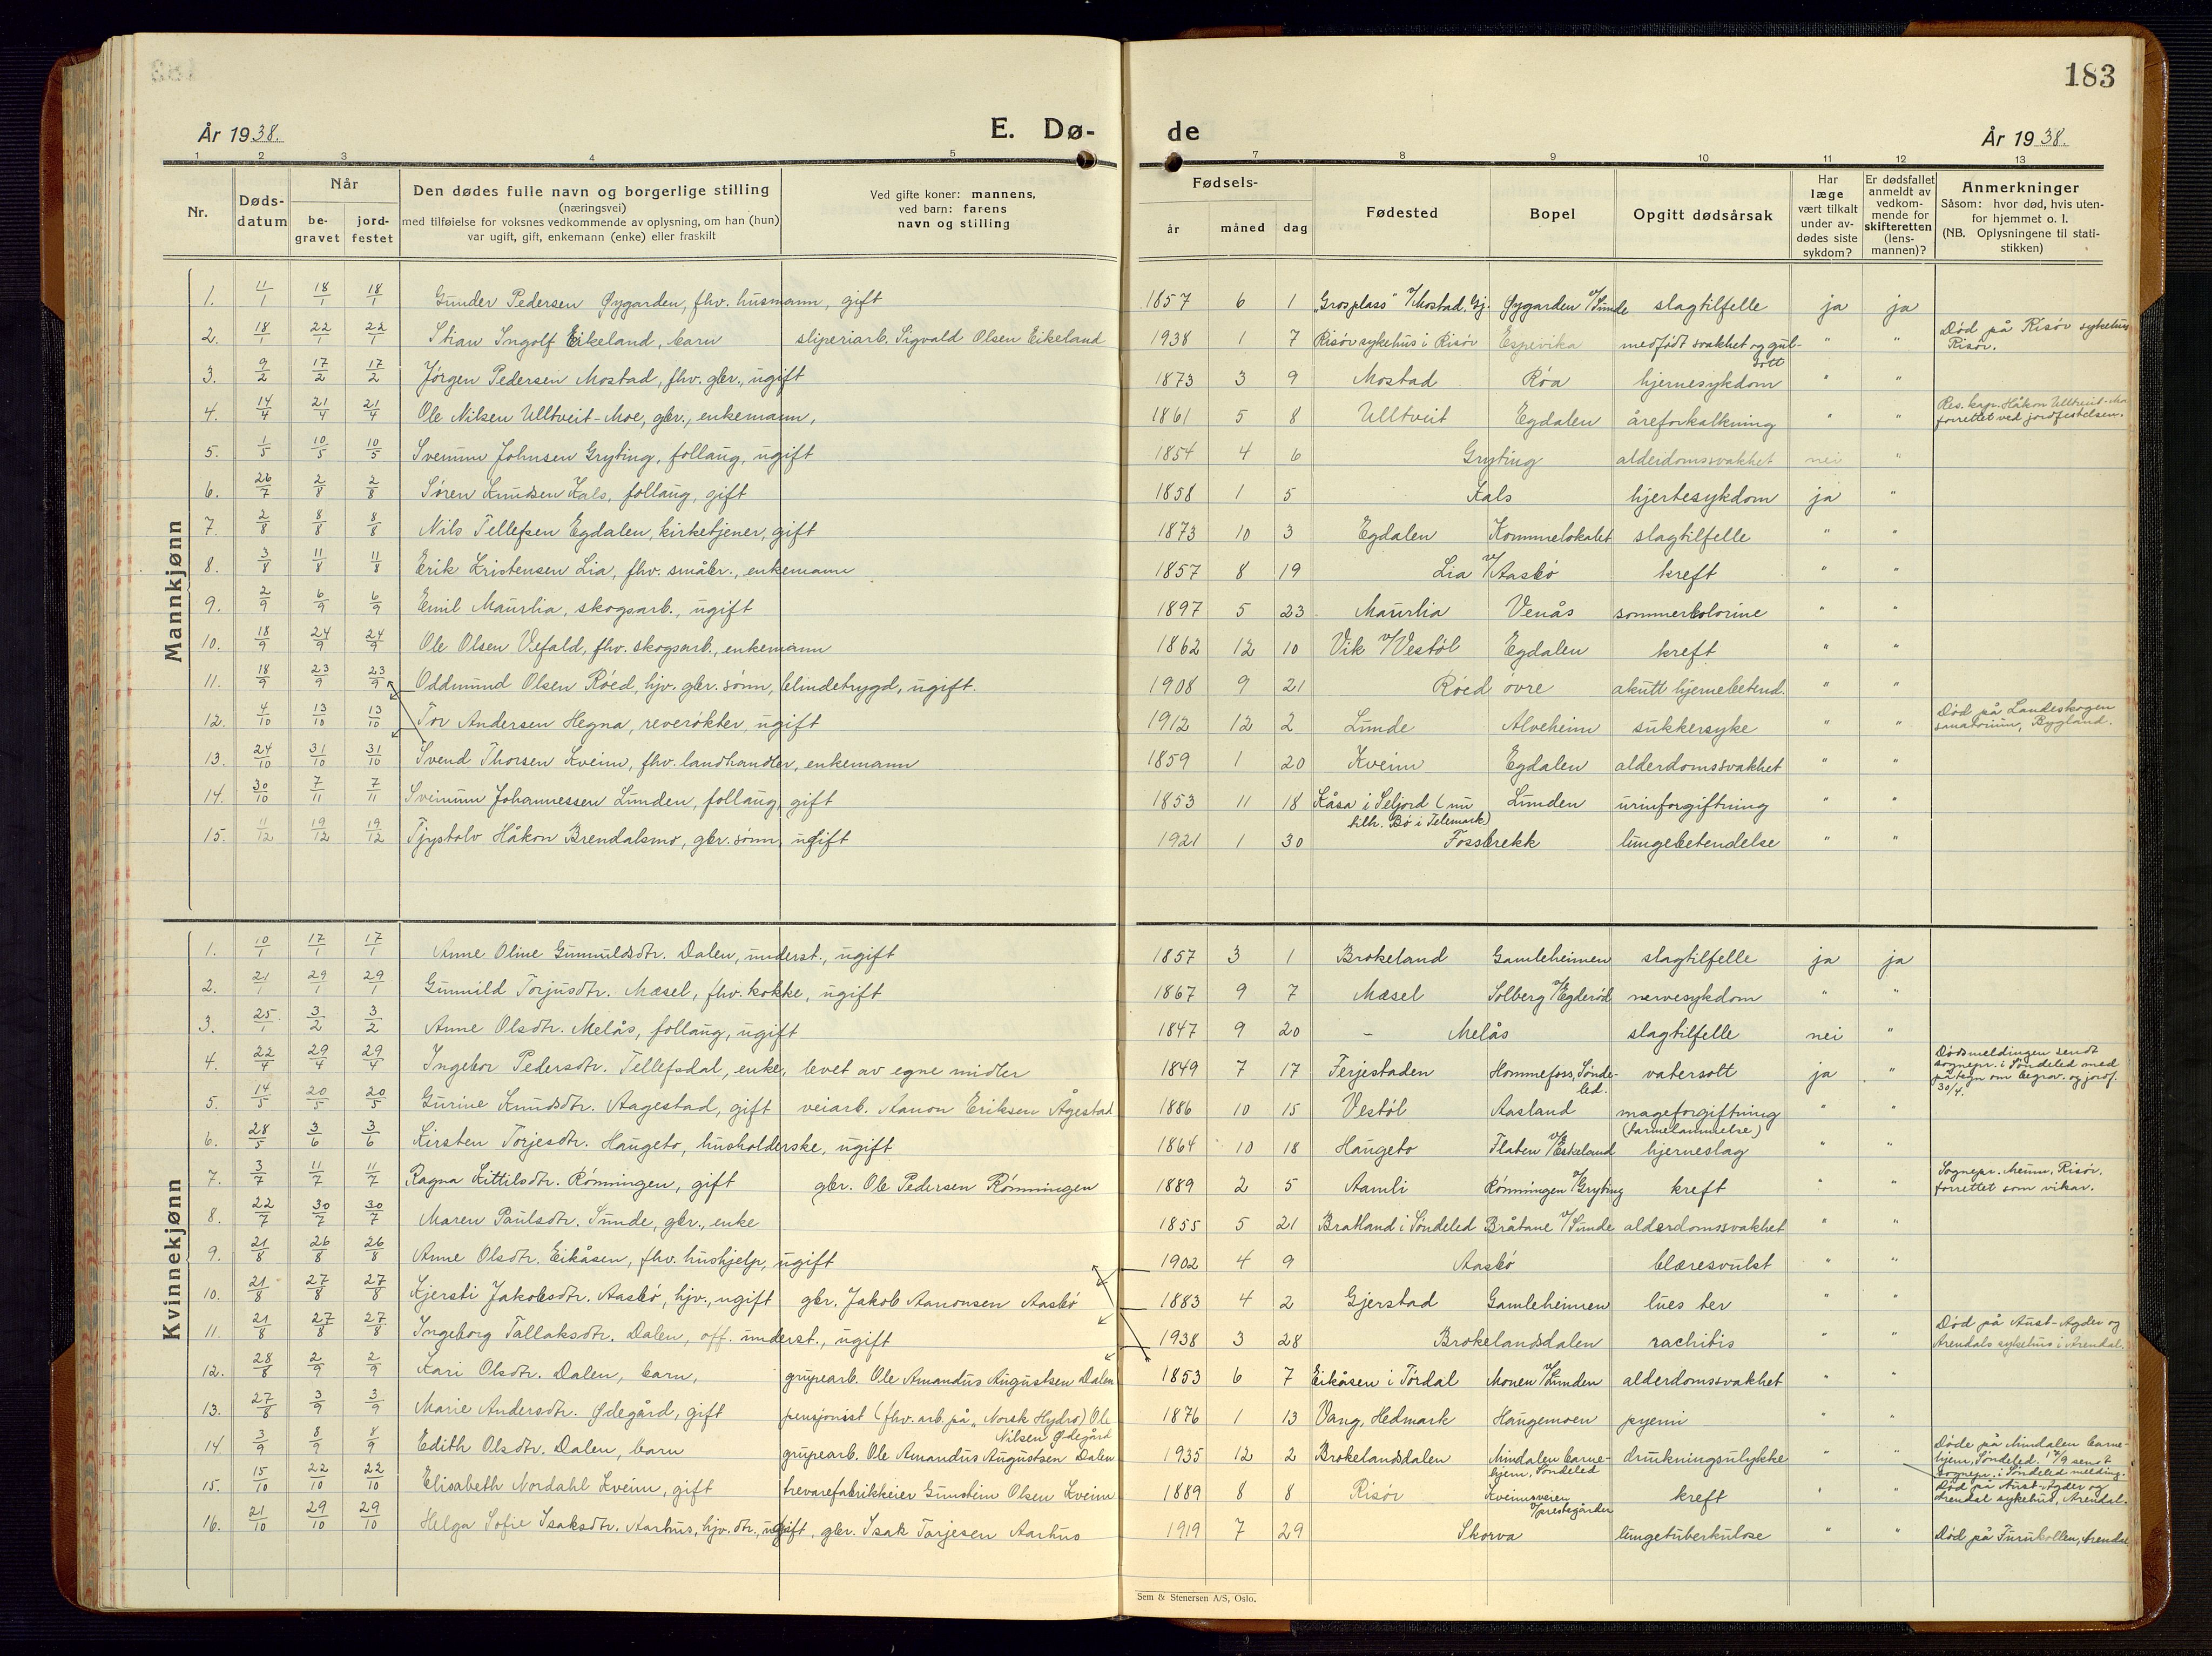 183
År 1938. E. Dø- de År 1938.
1 2 3 4 5 7 8 9 10 11 12 13
Nr. Døds-datum Når be-gravet jord-festet Den dødes fulle navn og borgerlige stilling (næringsvei) med tilføielse for voksnes vedkommende av oplysning, om han (hun) var ugift, gift, enkemann (enke) eller fraskilt Ved gifte koner: mannens, ved barn: farens navn og stilling Fødsels- år måned dag Fødested Bopel Opgitt dødsårsak Har læge vært tilkalt under av-dødes siste sykdom? Er dødsfallet anmeldt av vedkom-mende for skifteretten (lens-mannen)? Anmerkninger Såsom: hvor død, hvis uten-for hjemmet o. l. (NB. Oplysningene til stati-stikken)
Mannkjønn
1. 11/1 18/1 18/1 Gunder Pedersen Øygarden, fhv. husmann, gift 1857 6 1 "Grosplass" v/Mostad, Gj. Øygarden v/Sunde slagtilfelle ja ja
2. 18/1 22/1 22/1 Stian Ingolf Eikeland, barn sliperiarb. Sigvald Olsen Eikeland 1938 1 7 Risør sykehus i Risør Espevika medfødt svakhet og gul-sott " " Død på Risør sykehus Risør.
3. 9/2 17/2 17/2 Jørgen Pedersen Mostad, fhv. gbr., ugift 1873 3 9 Mostad Røa hjernesykdom " "
4. 14/4 21/4 21/4 Ole Nilsen Ulltveit-Moe, gbr., enkemann, 1861 5 8 Ulltveit Egdalen åreforkalkning " " Res. kap. Håkon Ulltveit-Moe forrettet ved jordfestelsen.
5. 1/5 10/5 10/5 Svenum Johnsen Gryting, follaug, ugift 1854 4 6 Gryting alderdomssvakhet nei "
6. 26/7 2/8 2/8 Søren Knudsen Kals, follaug, gift 1858 1 5 Kals hjertesykdom ja "
7. 2/8 8/8 8/8 Nils Tellefsen Egdalen, kirketjener, gift 1873 10 3 Egdalen Kommelokalet slagtilfelle " "
8. 3/8 11/8 11/8 Erik Kristensen Lia, fhv. småbr., enkemann 1857 8 19 Lia v/Aasbø kreft " "
9. 2/9 6/9 6/9 Emil Maurlia, skogsarb., ugift 1897 5 23 Maurlia Venås sommerkolorine " "
10. 18/9 24/9 24/9 Ole Olsen Vefald, fhv. skogsarb., enkemann 1862 12 10 Vik v/Vestøl Egdalen kreft " "
11. 18/9 23/9 23/9 Oddmund Olsen Røed, hjv. gbr. sønn, blindetrygd, ugift. 1908 9 21 Røed øvre akutt hjernebetend. " "
12. 4/10 13/10 13/10 Tor Andersen Hegna, reverøkter, ugift 1912 12 2 Lunde Alveheim sukkersyke " " Død på Landeskogen sanatorium, Bygland.
13. 24/10 31/10 31/10 Svend Thorsen Kveim, fhv. landhandler, enkemann 1859 1 20 Kveim Egdalen alderdomssvakhet " "
14. 30/10 7/11 7/11 Sveinum Johannessen Lunden, follaug, gift 1853 11 18 Kåsa i Seljord (nu tilh. Bø i Telemark) Lunden urinforgiftning " "
15. 11/12 19/12 19/12 Tjystolv Håkon Brendalsmo, gbr. sønn, ugift 1921 1 30 Fossbrekk lungebetendelse " "
Kvinnekjønn
1. 10/1 17/1 17/1 Anne Oline Gunnuldsdtr. Dalen, underst., ugift 1857 3 1 Brokeland Gamleheimen slagtilfelle ja ja
2. 21/1 29/1 29/1 Gunnild Torjusdtr. Mæsel, fhv. kokke, ugift 1867 9 7 Mæsel Solberg v/Egderød nervesykdom " "
3. 25/1 3/2 3/2 Anne Olsdtr. Melås, follaug, ugift 1847 9 20 - Melås slagtilfelle nei "
4. 22/4 29/4 29/4 Ingebor Pedersdtr. Tellefsdal, enke, levet av egne midler 1849 7 17 Ferjestaden Hommefoss, Sønde-led. vatersott ja " Dødsmeldingen sendt sognepr. i Søndeled med påtegn om begrav. og jordf. 30/4.
5. 14/5 20/5 20/5 Gurine Knudsdtr. Aagestad, gift veiarb. Aanon Eriksen Ågestad 1886 10 15 Vestøl Aasland mageforgiftning (tarmelammelse) " "
6. 28/5 3/6 3/6 Kirsten Torjesdtr. Haugeto, husholderske, ugift 1864 10 18 Haugeto Flaten v/Eskeland hjerneslag " "
7. 3/7 11/7 11/7 Ragna Kittilsdtr. Rønningen, gift gbr. Ole Pedersen Rønningen 1889 2 5 Aamli Rønningen v/Gryting kreft " " Sognepr. Meum, Risør, forrettet som vikar.
8. 22/7 30/7 30/7 Maren Paulsdtr. Sunde, gbr., enke 1855 5 21 Bratland i Søndeled Bråtane v/Sunde alderdomssvakhet " "
9. 21/8 26/8 26/8 Anne Olsdtr. Eikåsen, fhv. hushjelp, ugift 1902 4 9 Aasbø blæresvulst " "
10. 21/8 27/8 27/8 Kjersti Jakobsdtr. Aasbø, hjv., ugift gbr. Jakob Aanonsen Aasbø 1883 4 2 Gjerstad Gamleheimen lues ter " "
11. 21/8 27/8 27/8 Ingeborg Tallaksdtr. Dalen, off. underst., ugift 1938 3 28 Brokelandsdalen rachitis " " Død på Aust-Agder og Arendals sykehus i Arendal.
12. 28/8 2/9 2/9 Kari Olsdtr. Dalen, barn, grupearb. Ole Amandus Augustsen Dalen 1853 6 7 Eikåsen i Tørdal Monen v/Lunden alderdomssvakhet " "
13. 27/8 3/9 3/9 Marie Andersdtr. Ødegård, gift pensjonist (fhv. arb. på "Norsk Hydro) Ole Nilsen Ødegård 1876 1 13 Vang, Hedmark Haugemoen pyemi " "
14. 3/9 8/9 8/9 Edith Olsdtr. Dalen, barn grupearb. Ole Amandus Augustsen Dalen 1935 12 2 Brokelandsdalen Mindalen barne-hjem, Søndeled drukningsulykke " " Døde på Mindalen barne-hjem, Søndeled. sendt sognepr. i Søndeled melding.
15. 15/10 22/10 22/10 Elisabeth Nordahl Kveim, gift trevarefabrikkeier Gunstein Olsen Kveim 1889 8 8 Risør Kveimsveien v/prestegården kreft " " Død på Aust-Agder og Arendal sykehus, Arendal.
16. 21/10 29/10 29/10 Helga Sofie Isaksdtr. Aarhus, hjv. dtr., ugift, gbr. Isak Tarjesen Aarhus 1919 7 29 Skorva lungetuberkulose " " Død på Furukollen, Arendal
Sem & Stenersen A/S, Oslo.